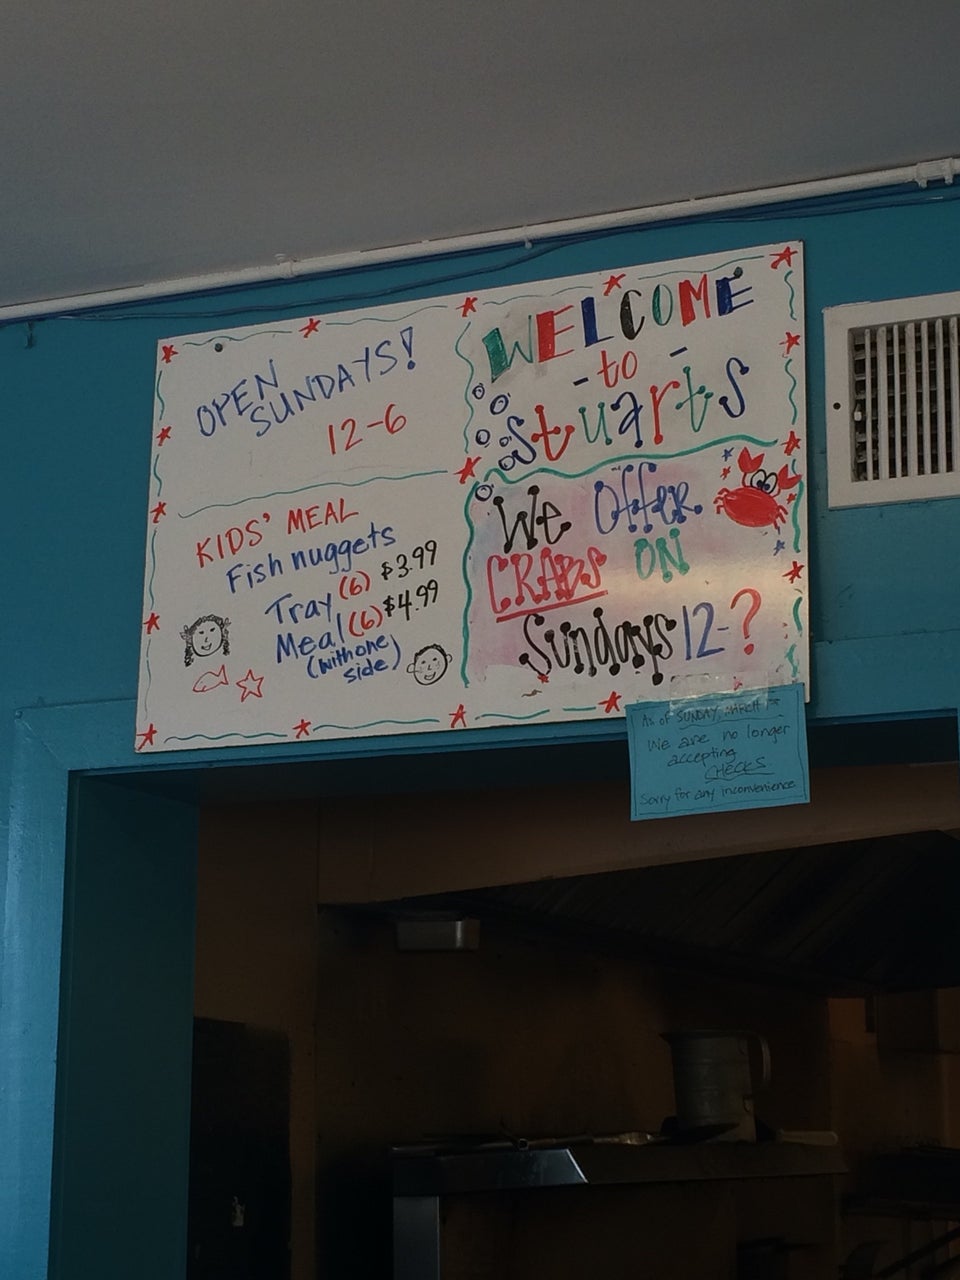 OPEN
SUNDAYS!
12-6
WELCOME
- to -
Stuarts
KIDS' MEAL
Fish nuggets
Tray (6) $3.99
Meal (6) $4.99
(with one
side)
We Offer
CRABS ON
Sundays 12-?
As of SUNDAY, MARCH 1st
We are no longer
accepting
CHECKS
Sorry for any inconvenience